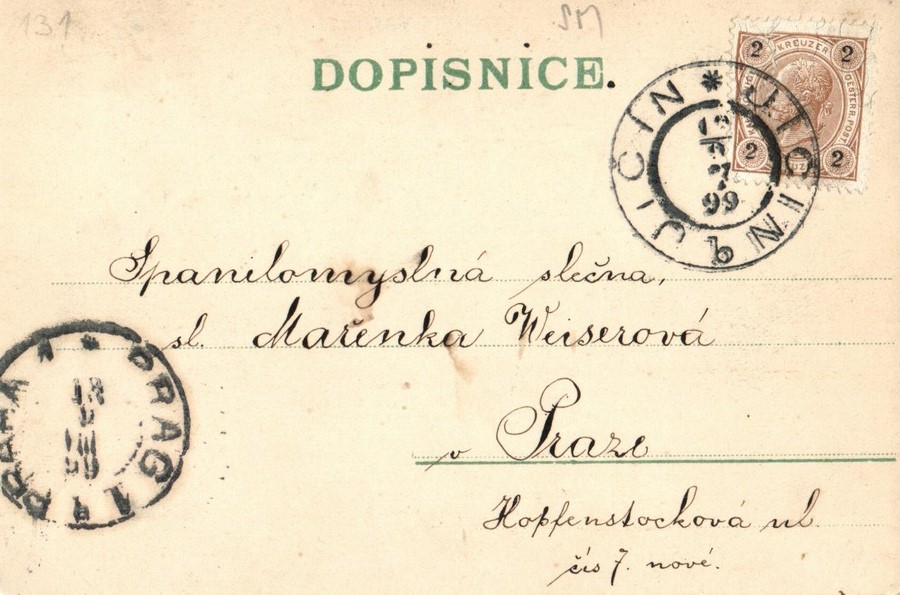 131
SM
DOPISNICE.
2 KREUZER 2
OESTERR. POST.
2 2
JIČÍN * JIČÍN b
99
Spanilomyslná slečna,
sl. Mařenka Weiserová
v Praze
Hopfenstocková ul.
čís 7. nové.
PRAHA 1 * PRAG 1